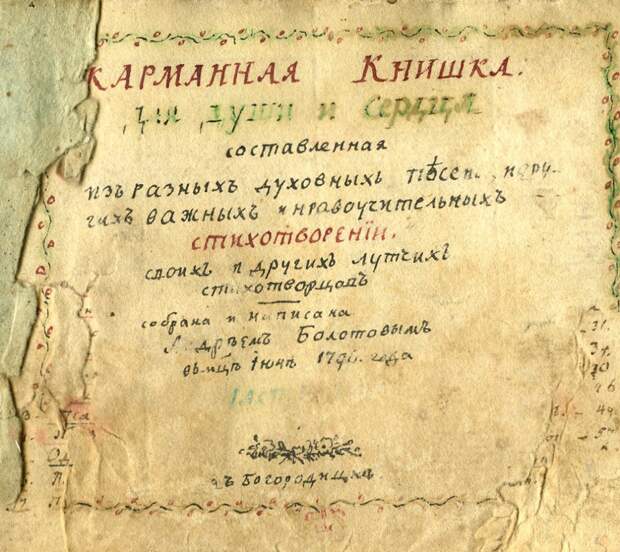 КАРМАННАЯ КНИШКА.
для души и сердца
составленная
изъ разныхъ духовныхъ пѣсенъ, и дру-
гихъ важныхъ и нравоучительныхъ
СТИХОТВОРЕНІИ.
своихъ и другихъ лутчихъ
стихотворцовъ
собрана и написана
Андрѣемъ Болотовымъ
въ мцѣ Іюнѣ 179 года
Част
въ Богородицкѣ
31.
34